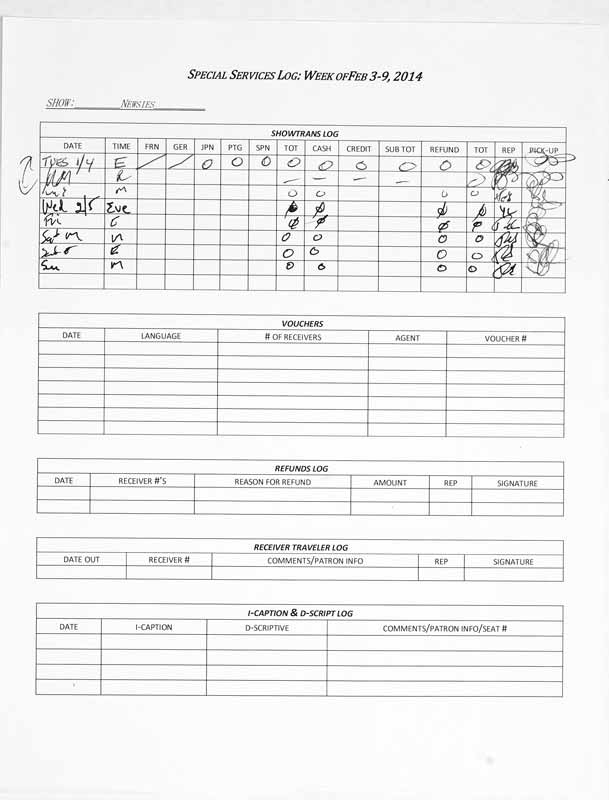 SPECIAL SERVICES LOG: WEEK OF FEB 3-9, 2014
SHOW: NEWSIES
SHOWTRANS LOG
DATE TIME FRN GER JPN PTG SPN TOT CASH CREDIT SUB TOT REFUND TOT REP PICK-UP
TUES 1/4 E / / 0 0 0 0 0 0 0 0 0
— — — —
M 0 0 0 0
Wed 2/5 Eve 0 0 0 0
Fri E 0 0 0 0
Sat M M 0 0 0 0
Sat E E 0 0 0 0
Su M 0 0 0 0
VOUCHERS
DATE LANGUAGE # OF RECEIVERS AGENT VOUCHER #
REFUNDS LOG
DATE RECEIVER #'S REASON FOR REFUND AMOUNT REP SIGNATURE
RECEIVER TRAVELER LOG
DATE OUT RECEIVER # COMMENTS/PATRON INFO REP SIGNATURE
I-CAPTION & D-SCRIPT LOG
DATE I-CAPTION D-SCRIPTIVE COMMENTS/PATRON INFO/SEAT #